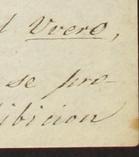 Vvero,
se pro-
ibicion